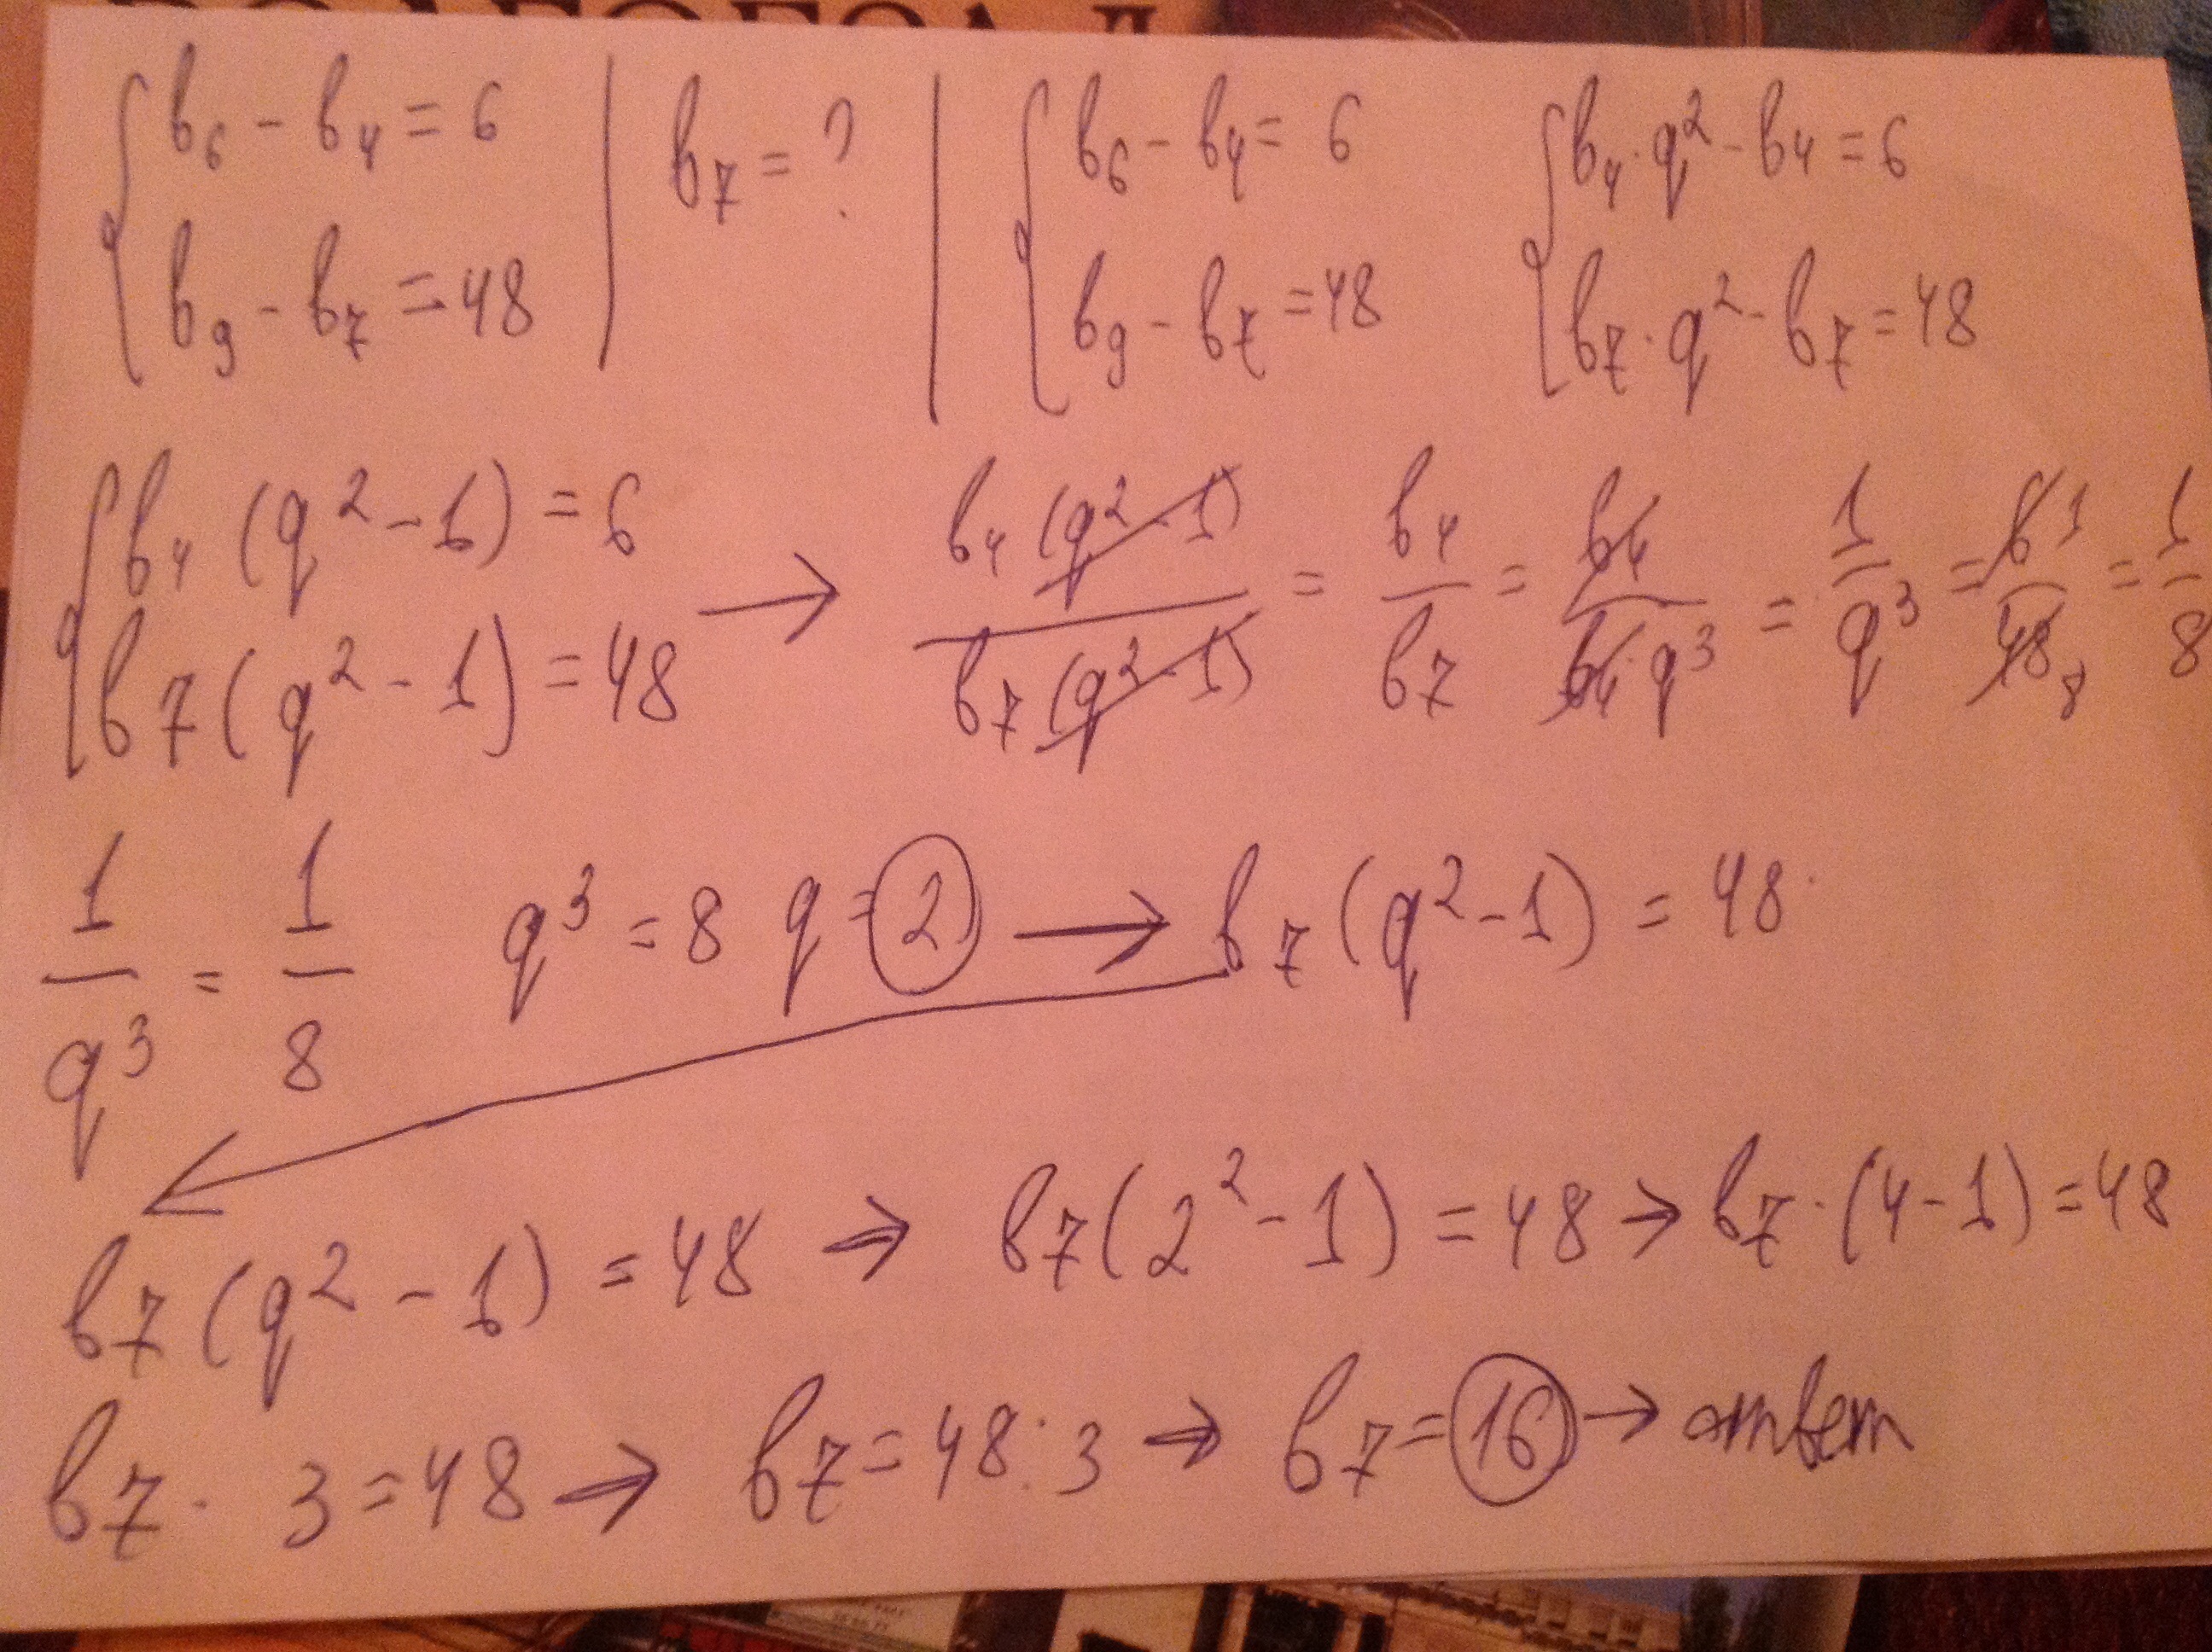 { b₆ - b₄ = 6 | b₇ = ? | { b₆ - b₄ = 6 { b₄ · q² - b₄ = 6
b₉ - b₇ = 48 b₉ - b₇ = 48 b₇ · q² - b₇ = 48
{ b₄ (q² - 1) = 6
b₇ (q² - 1) = 48 → b₄ (q² - 1) / b₇ (q² - 1) = b₄ / b₇ = b₄ / b₄ · q³ = 1 / q³ = 6 1 / 48 8 = 1 / 8
1 / q³ = 1 / 8 q³ = 8 q = 2 → b₇ (q² - 1) = 48
b₇ (q² - 1) = 48 → b₇ (2² - 1) = 48 → b₇ · (4 - 1) = 48
b₇ · 3 = 48 → b₇ = 48 : 3 → b₇ = 16 → ответ